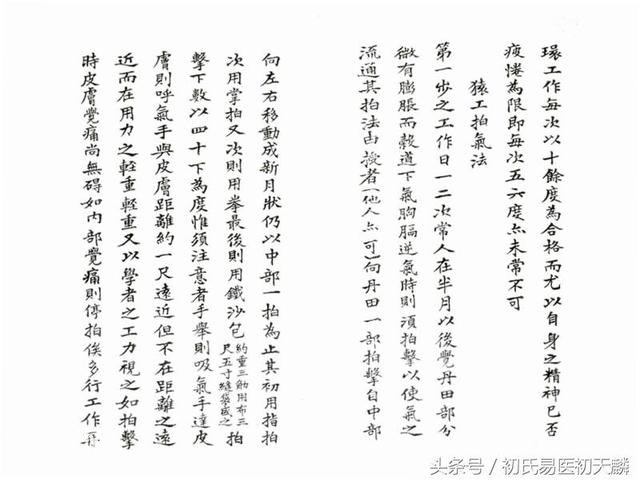 環工作每次以十餘度為合格而尤以自身之精神已否
疲憊為限即每次五六度亦未常不可
猿工拍氣法
第一步之工作日一二次常人在半月以後覺丹田部分
微有膨脹而穀道下氣胸膈逆氣時則須拍擊以使氣之
流通其拍法由授者(他人亦可)向丹田一部拍擊自中部
向左右移動成新月狀仍以中部一拍為止其初用指拍
次用掌拍又次則用拳最後則用鐵沙包約重三觔用布三尺五寸縫袋盛之拍
擊下數以四十下為度惟須注意者手舉則吸氣手達皮
膚則呼氣手與皮膚距離約一尺遠近但不在距離之遠
近而在用力之輕重輕重又以學者之工力視之如拍擊
時皮膚覺痛尚無碍如內部覺痛則停拍俟多行工作再
头条号/初氏易医初天麟